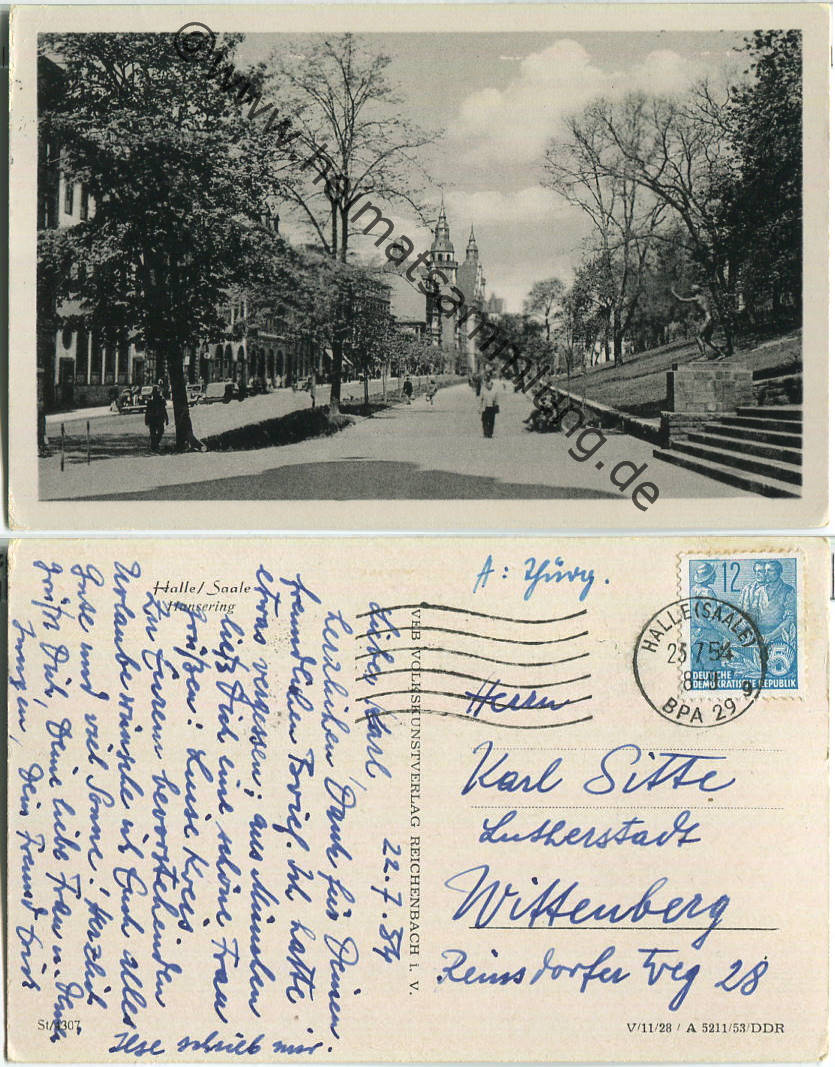 © www.heimatsammlung.de
Halle/Saale
Hansering
A: Thürg.
Lieber Karl,
22.7.54
herzlichen Dank für Deinen
freundlichen Brief. Ich hatte
etwas vergessen; aus München
ließ Dich eine schöne Frau
grüßen: Luise Kreis
Zu Eurem bevorstehenden
Urlaube wünsche ich Euch alles
Gute und viel Sonne. Herzlich
grüßt Dich, Deine liebe Frau u. Deine
Jungen, Dein Freund
Ilse schrieb mir.
VEB VOLKSKUNSTVERLAG REICHENBACH i. V.
St/4307
12
DEUTSCHE
DEMOKRATISCHE REPUBLIK
5
HALLE (SAALE)
23.7.54
BPA 29
Herrn
Karl Sitte
Lutherstadt
Wittenberg
Reinsdorfer Weg 28
V/11/28 / A 5211/53/DDR